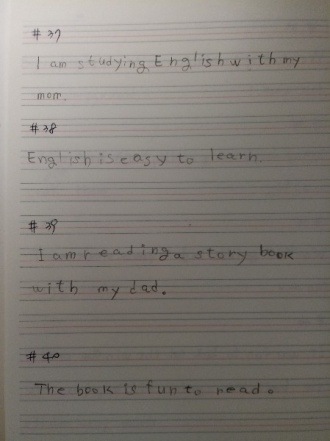 # 37
I am studying English with my
mom.
# 38
English is easy to learn.
# 39
I am reading a story book
with my dad.
# 40
The book is fun to read.